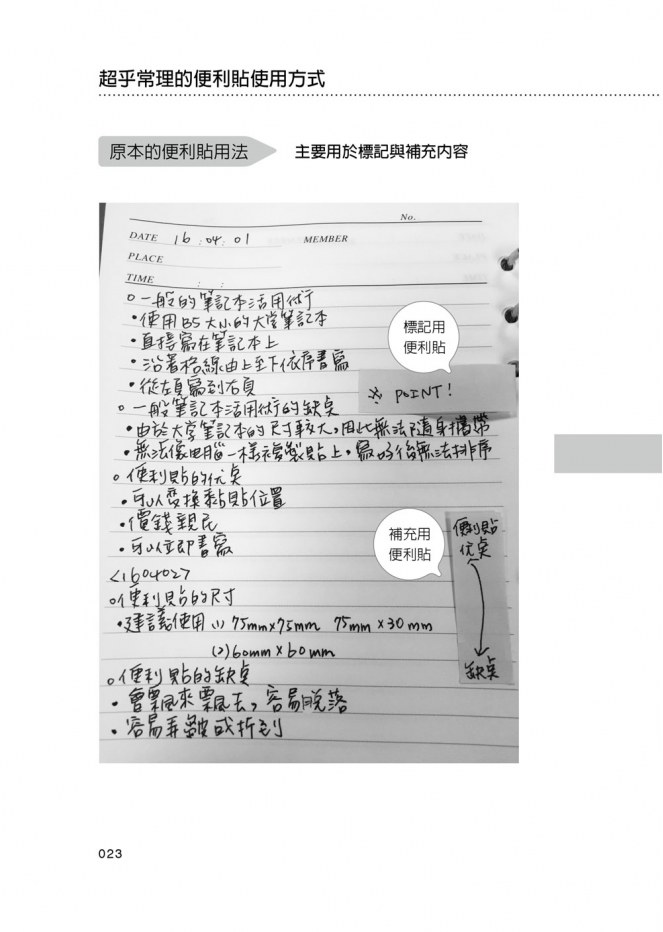 超乎常理的便利貼使用方式
原本的便利貼用法
主要用於標記與補充內容
No.
DATE 16 . 04 . 01 MEMBER
PLACE
TIME : :
○一般的筆記本活用術
・使用B5大小的大學筆記本
・直接寫在筆記本上
・沿著格線由上至下依序書寫
・從左頁寫到右頁
標記用
便利貼
※ POINT!
○一般筆記本活用術的缺点
・由於大學筆記本的尺寸較大,因此無法隨身攜帶
・無法像電腦一樣複製貼上,寫好後無法排序
○便利貼的优点
・可以變換黏貼位置
・價錢親民
・可以立即書寫
補充用
便利貼
便利貼
优点
缺点
<160402>
○便利貼的尺寸
・建議使用 (1) 75mm×75mm 75mm×30mm
(2) 60mm×60mm
○便利貼的缺点
・會飄來飄去,容易脫落
・容易弄皺或折到
023